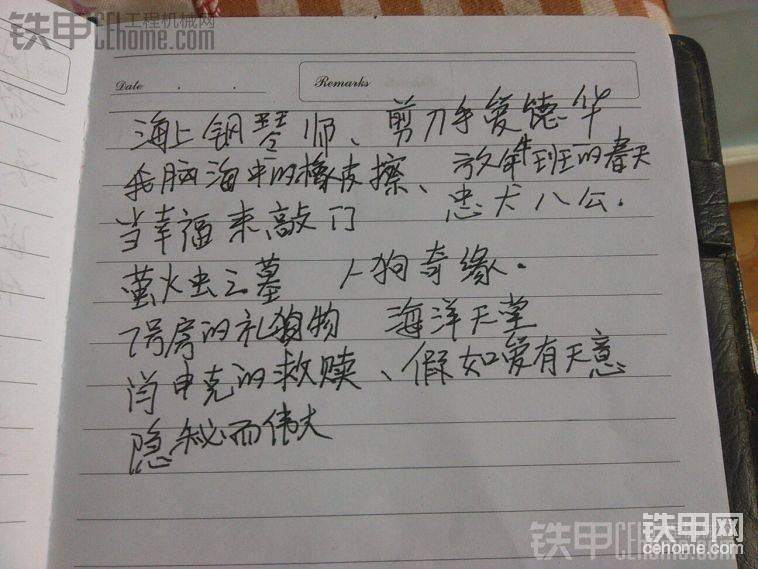 铁甲工程机械网
CEhome.com
Date . .
Remarks
海上钢琴师、剪刀手爱德华
我脑海中的橡皮擦、放牛班的春天
当幸福来敲门 忠犬八公.
萤火虫之墓 人狗奇缘.
7号房的礼物 海洋天堂
肖申克的救赎、假如爱有天意
隐秘而伟大
铁甲网
cehome.com